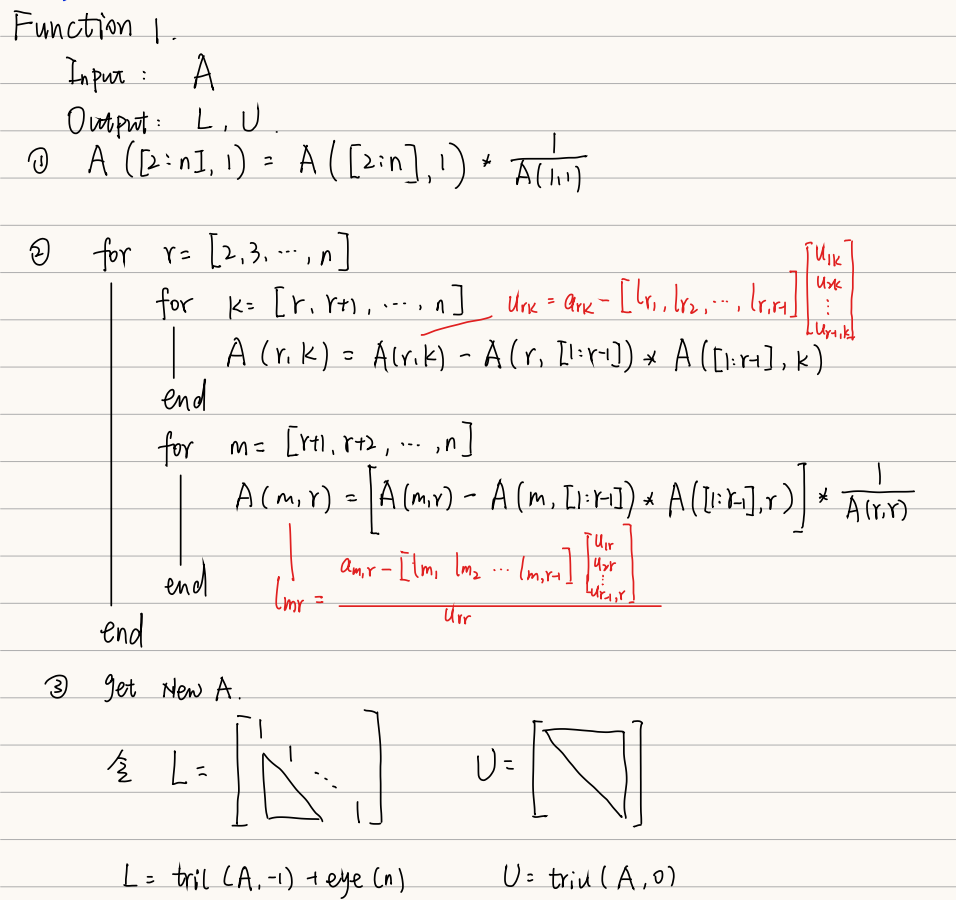 Function 1.
Input : A
Output : L, U.
① A ([2:n], 1) = A ([2:n], 1) * 1/A(1,1)
② for r = [2,3,⋯,n]
for k = [r, r+1, ⋯, n] u_{rk} = a_{rk} - [l_{r1}, l_{r2}, ⋯, l_{r,r-1}] [u_{1k} u_{2k} ⋮ u_{r-1,k}]
A (r, k) = A(r,k) - A(r, [1:r-1]) * A([1:r-1], k)
end
for m = [r+1, r+2, ⋯, n]
A (m, r) = [A(m,r) - A(m, [1:r-1]) * A([1:r-1],r)] * 1/A(r,r)
l_{mr} = (a_{m,r} - [l_{m1} l_{m2} ⋯ l_{m,r-1}] [u_{1r} u_{2r} ⋮ u_{r-1,r}]) / u_{rr}
end
end
③ get New A.
令 L = [1 1 ⋱ 1] U = [ ]
L = tril (A,-1) + eye(n) U = triu(A,0)